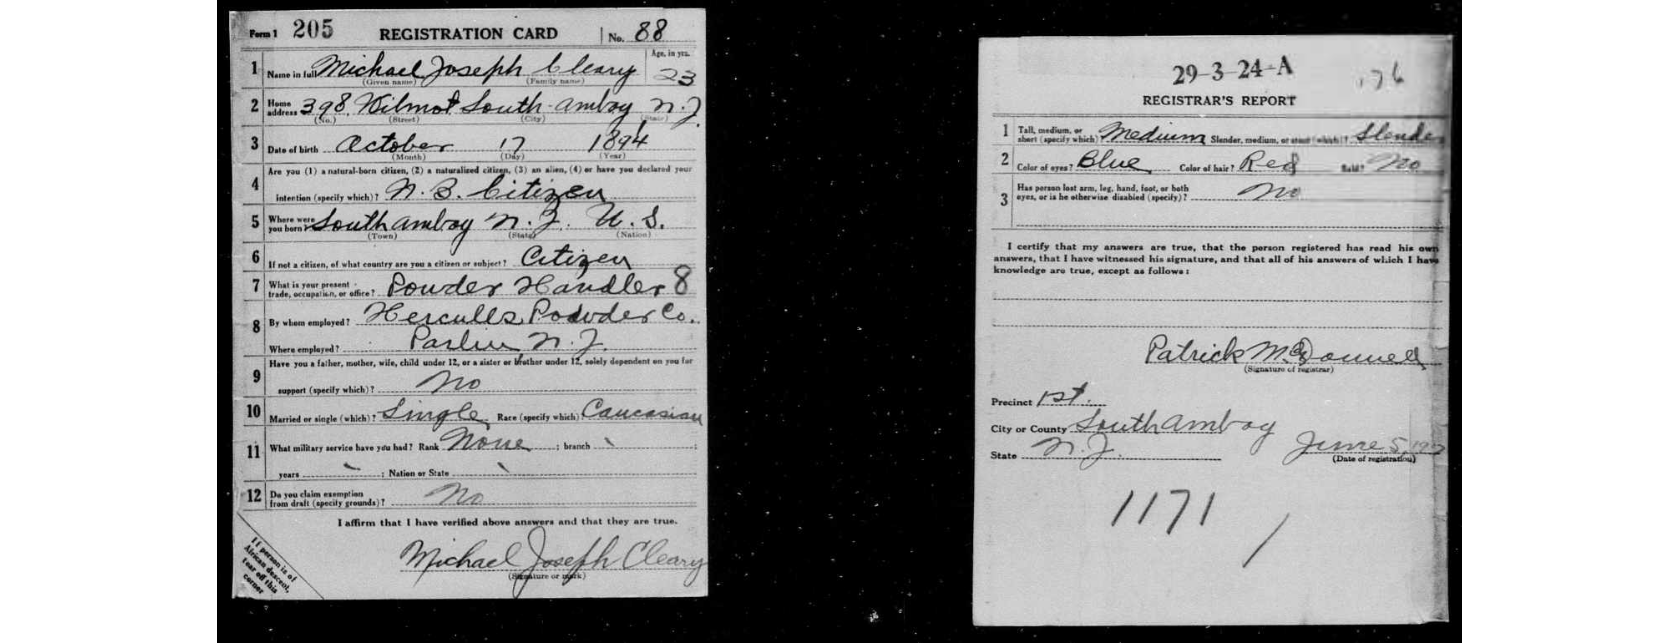 Form 1 205 REGISTRATION CARD No. 88
1 Name in full Michael Joseph Cleary Age, in yrs. 23
(Given name) (Family name)
2 Home address 398 Wilmot South amboy N.J.
(No.) (Street) (City) (State)
3 Date of birth October 17 1894
(Month) (Day) (Year)
4 Are you (1) a natural-born citizen, (2) a naturalized citizen, (3) an alien, (4) or have you declared your
intention (specify which)? N. B. Citizen
5 Where were you born? South amboy N. J. U. S.
(Town) (State) (Nation)
6 If not a citizen, of what country are you a citizen or subject? Citizen
7 What is your present trade, occupation, or office? Powder Handler 8
8 By whom employed? Hercules Powder Co.
Where employed? Parlin N. J.
9 Have you a father, mother, wife, child under 12, or a sister or brother under 12, solely dependent on you for
support (specify which)? No
10 Married or single (which)? Single Race (specify which)? Caucasian
11 What military service have you had? Rank None ; branch ;
years ; Nation or State
12 Do you claim exemption
from draft (specify grounds)? No
I affirm that I have verified above answers and that they are true.
Michael Joseph Cleary
(Signature or mark)
If person is of
African descent,
tear off this
corner
29-3-24-A 176
REGISTRAR'S REPORT
1 Tall, medium, or
short (specify which)? Medium Slender, medium, or stout (which)? Slender
2 Color of eyes? Blue Color of hair? Red Bald? No
3 Has person lost arm, leg, hand, foot, or both
eyes, or is he otherwise disabled (specify)? No
I certify that my answers are true, that the person registered has read his own
answers, that I have witnessed his signature, and that all of his answers of which I have
knowledge are true, except as follows:
Patrick McDonnell
(Signature of registrar)
Precinct 1st.
City or County South Amboy
State N. J. June 5, 1917
(Date of registration)
1171